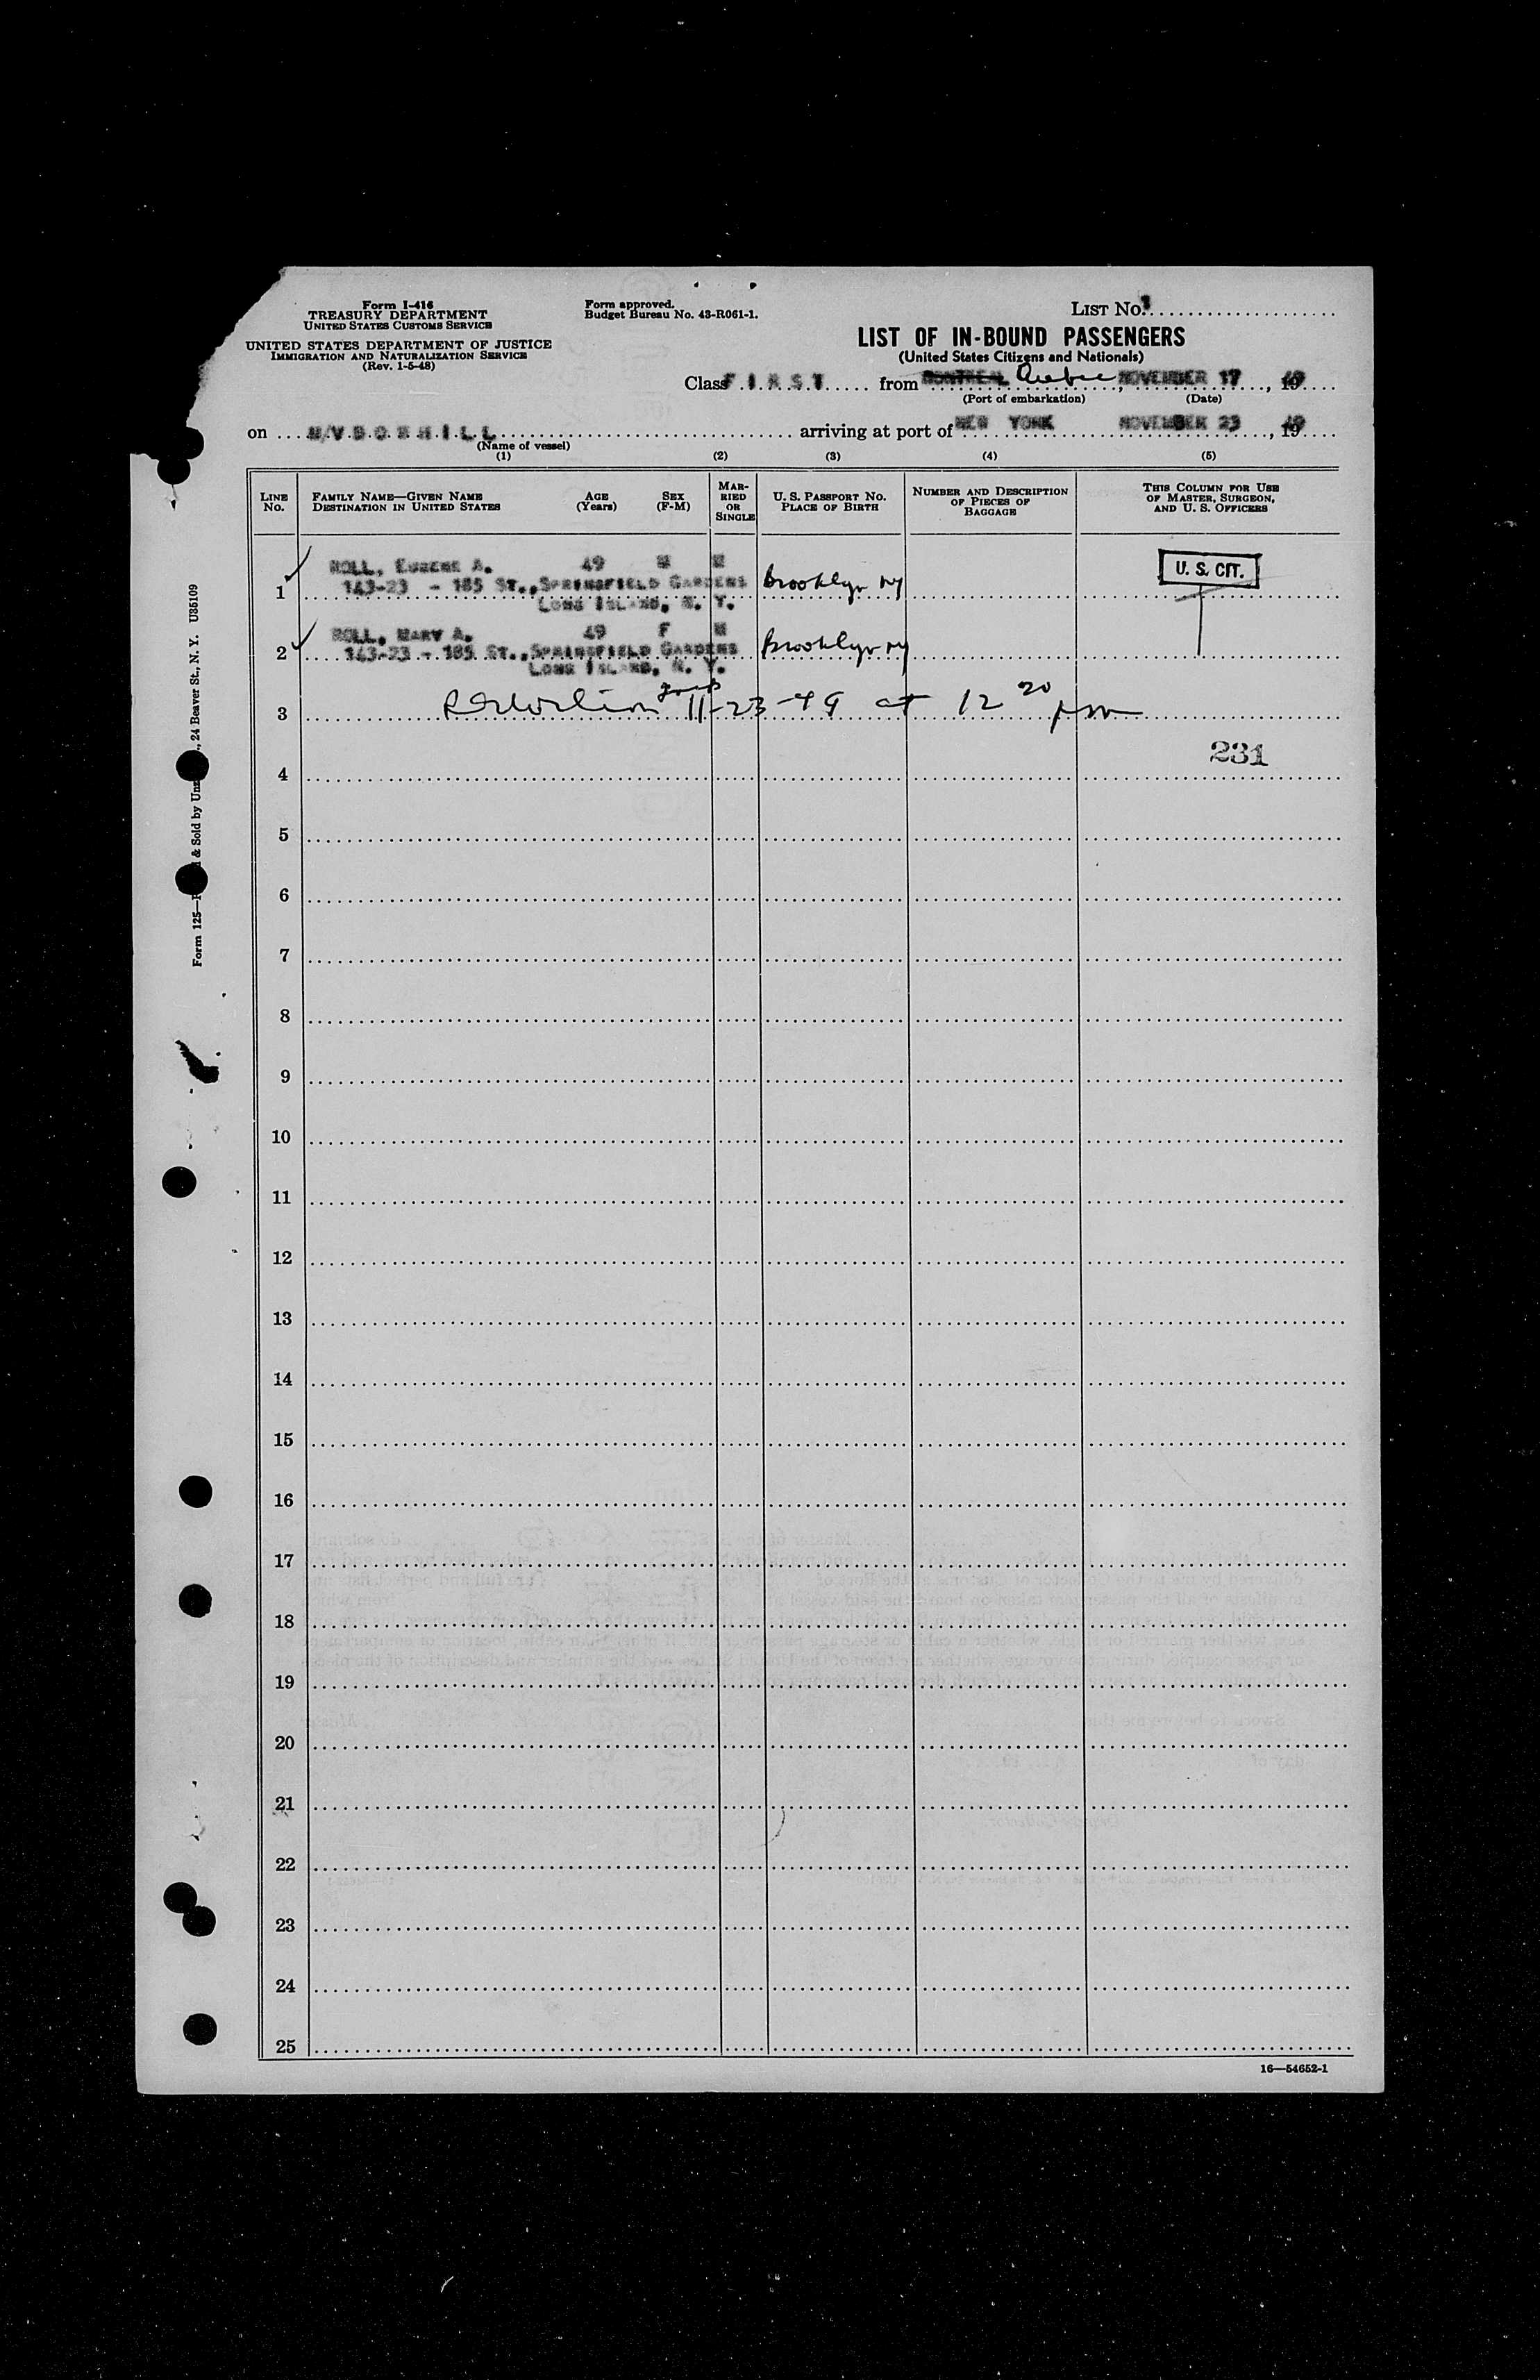 Form I-416
TREASURY DEPARTMENT
UNITED STATES CUSTOMS SERVICE
UNITED STATES DEPARTMENT OF JUSTICE
IMMIGRATION AND NATURALIZATION SERVICE
(Rev. 1-5-48)
Form approved.
Budget Bureau No. 43-R061-1.
LIST No.
LIST OF IN-BOUND PASSENGERS
(United States Citizens and Nationals)
Class FIRST from MONTREAL Quebec, NOVEMBER 17, 1949
(Port of embarkation) (Date)
on M/V arriving at port of NEW YORK NOVEMBER 23, 1949
(Name of vessel)
(1) (2) (3) (4) (5)
LINE No. FAMILY NAME—GIVEN NAME DESTINATION IN UNITED STATES AGE (Years) SEX (F-M) MARRIED OR SINGLE U. S. PASSPORT No. PLACE OF BIRTH NUMBER AND DESCRIPTION OF PIECES OF BAGGAGE THIS COLUMN FOR USE OF MASTER, SURGEON, AND U. S. OFFICERS
ROLL, EUGENE A. 49 M M
1 143-23 - 185 ST., SPRINGFIELD GARDENS Brooklyn NY U. S. CIT.
LONG ISLAND, N. Y.
ROLL, MARY A. 49 F M
2 143-23 - 185 ST., SPRINGFIELD GARDENS Brooklyn NY
LONG ISLAND, N. Y.
3 11-23-49 at 12 20 pm
231
4
5
6
7
8
9
10
11
12
13
14
15
16
17
18
19
20
21
22
23
24
25
16—54652-1
Form 125— & Sold by 24 Beaver St., N. Y. U35109